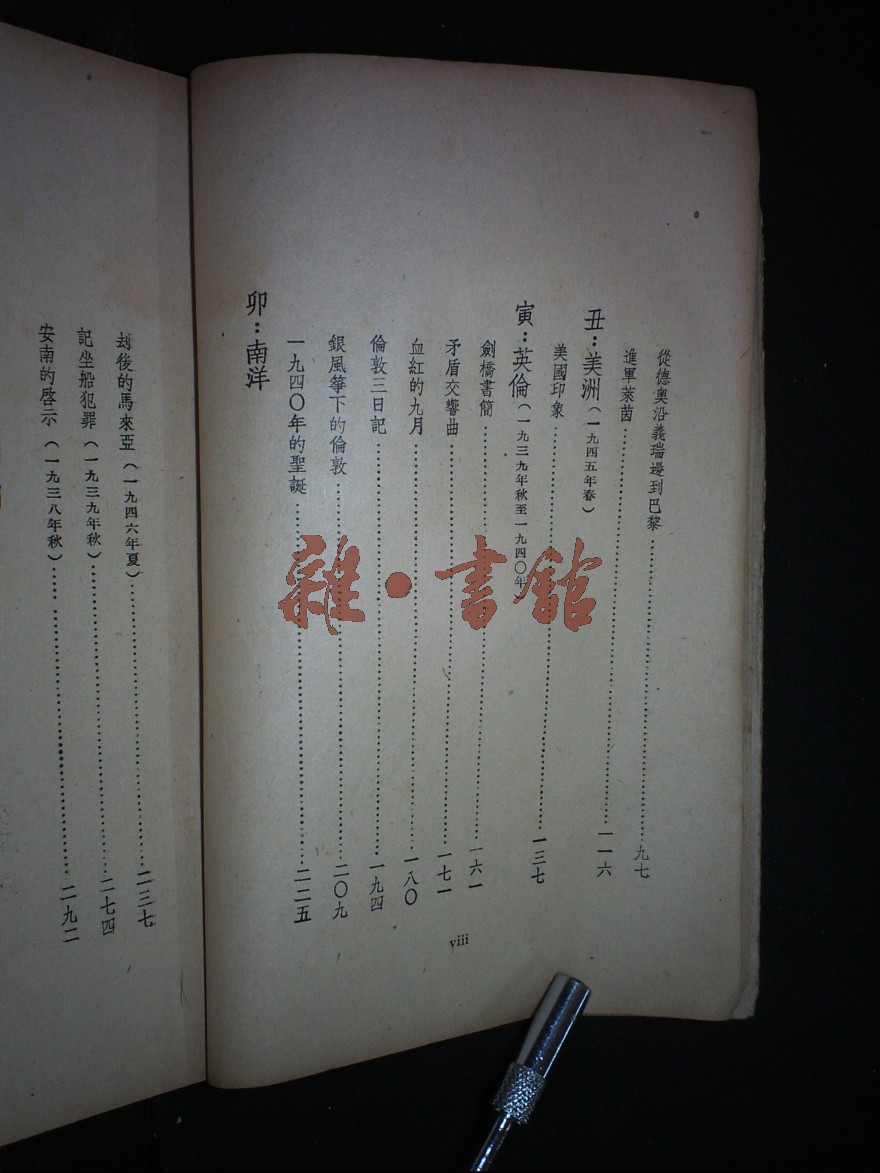 從德奧沿義瑞邊到巴黎……九七
進軍萊茵……一一六
丑：美洲（一九四五年春）
美國印象……一三七
寅：英倫（一九三九年秋至一九四〇年）
劍橋書簡……一六一
矛盾交響曲……一七一
血紅的九月……一八〇
倫敦三日記……一九四
銀風箏下的倫敦……二〇九
一九四〇年的聖誕……二二五
卯：南洋
viii
劫後的馬來亞（一九四六年夏）……二三七
記坐船犯罪（一九三九年秋）……二七四
安南的啓示（一九三八年秋）……二九二
雜·書館